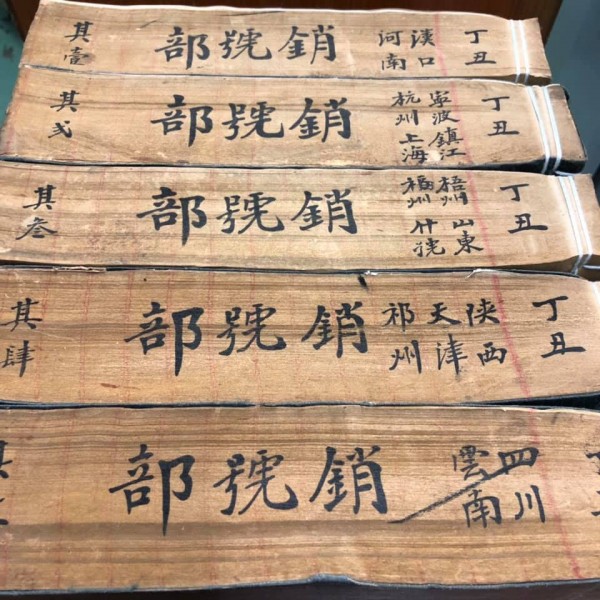 丁丑
漢口
河南
銷號部
其壹
丁丑
寧波鎮江
杭州上海
銷號部
其弍
丁丑
梧州山東
福州什號
銷號部
其叁
丁丑
陝西
天津
祁州
銷號部
其肆
四川
雲南
銷號部